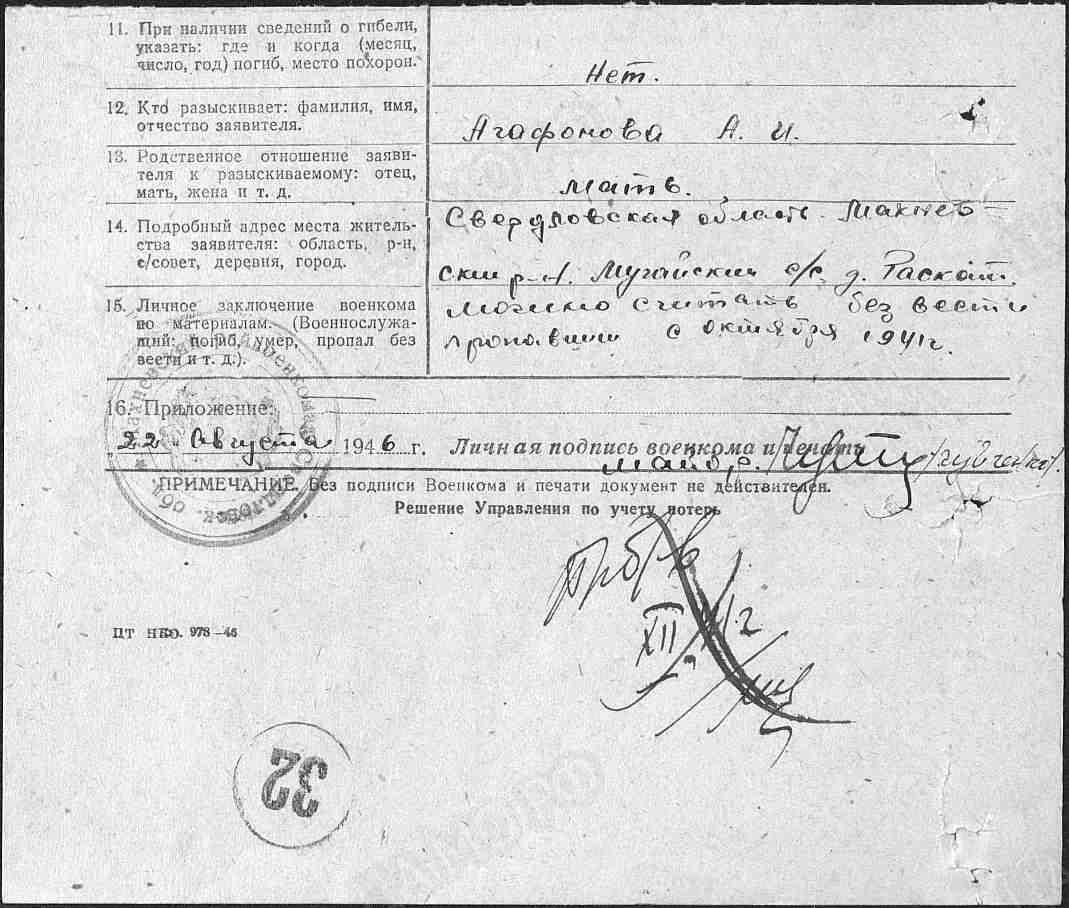 11. При наличии сведений о гибели,
указать: где и когда (месяц,
число, год) погиб, место похорон.
Нет.
12. Кто разыскивает: фамилия, имя,
отчество заявителя.
Агафонова А. И.
13. Родственное отношение заяви-
теля к разыскиваемому: отец,
мать, жена и т. д.
мать.
14. Подробный адрес места житель-
ства заявителя: область, р-н,
с/совет, деревня, город.
Свердловская область Махнев-
ский р-н. Мугайский с/с д. Раскат.
15. Личное заключение военкома
по материалам. (Военнослужа-
щий: погиб, умер, пропал без
вести и т. д.).
Можно считать без вести
пропавшим с октября 1941г.
16. Приложение:
22 Августа 1946 г. Личная подпись военкома и печать
майор.
ПРИМЕЧАНИЕ. Без подписи Военкома и печати документ не действителен.
Решение Управления по учету потерь
XII
ЦТ НКО. 978—46
32